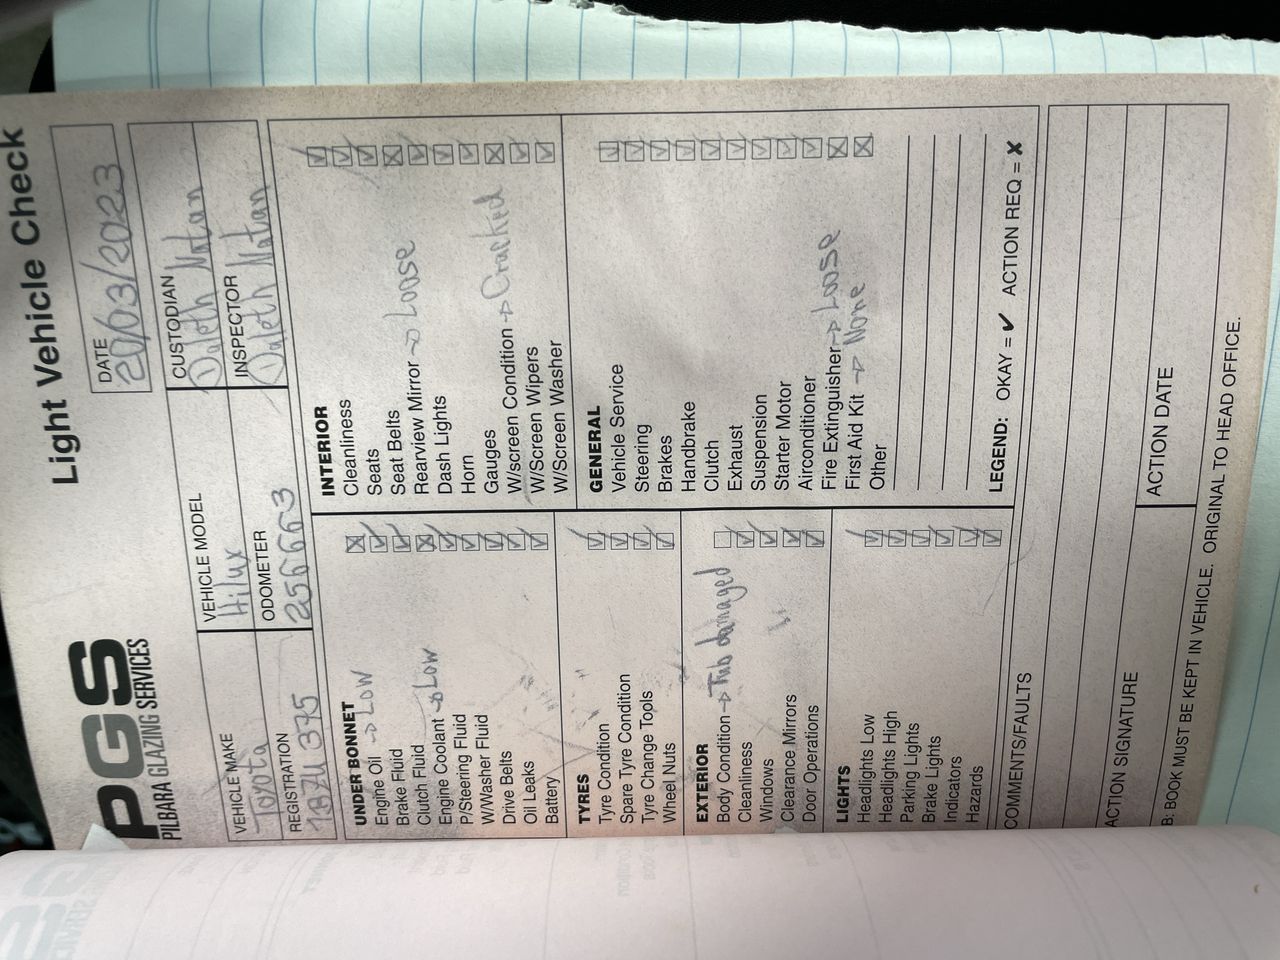 PGS
PILBARA GLAZING SERVICES
Light Vehicle Check
DATE
20/03/2023
VEHICLE MAKE
Toyota
VEHICLE MODEL
Hilux
CUSTODIAN
Daleth Natan
REGISTRATION
1BZU 375
ODOMETER
256663
INSPECTOR
Daleth Natan
UNDER BONNET
Engine Oil → Low
Brake Fluid
Clutch Fluid
Engine Coolant → Low
P/Steering Fluid
W/Washer Fluid
Drive Belts
Oil Leaks
Battery
TYRES
Tyre Condition
Spare Tyre Condition
Tyre Change Topls
Wheel Nuts
EXTERIOR
Body Condition → Tub damaged
Cleanliness
Windows
Clearance Mirrors
Door Operations
LIGHTS
Headlights Low
Headlights High
Parking Lights
Brake Lights
Indicators
Hazards
INTERIOR
Cleanliness
Seats
Seat Belts
Rearview Mirror → Loose
Dash Lights
Horn
Gauges
W/screen Condition → Cracked
W/Screen Wipers
W/Screen Washer
GENERAL
Vehicle Service
Steering
Brakes
Handbrake
Clutch
Exhaust
Suspension
Starter Motor
Airconditioner
Fire Extinguisher → Loose
First Aid Kit → None
Other
LEGEND: OKAY = ✔ ACTION REQ = ✘
COMMENTS/FAULTS
ACTION SIGNATURE
ACTION DATE
B: BOOK MUST BE KEPT IN VEHICLE. ORIGINAL TO HEAD OFFICE.